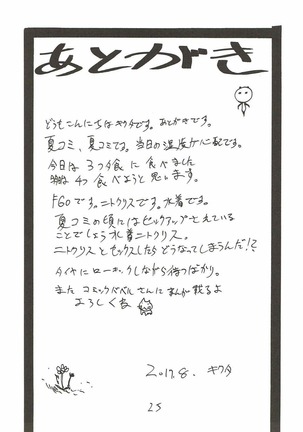 あとがき
どうもこんにちはキクタです。あとがきです。
夏コミ、夏コミです。当日の温度が心配です。
今日は3つ夕食に食べました
4つ食べようと思います。
FGOです。ニトクリスです。水着です。
夏コミの頃にはピックアップ
ことでしょう水着ニトクリス。
ニトクリスとセックスしたらどうなってしまうんだ!?
しながら待つばかり。
また コミックバベルさんにまんが載るよ
よろしくね
2017.8. キクタ
25